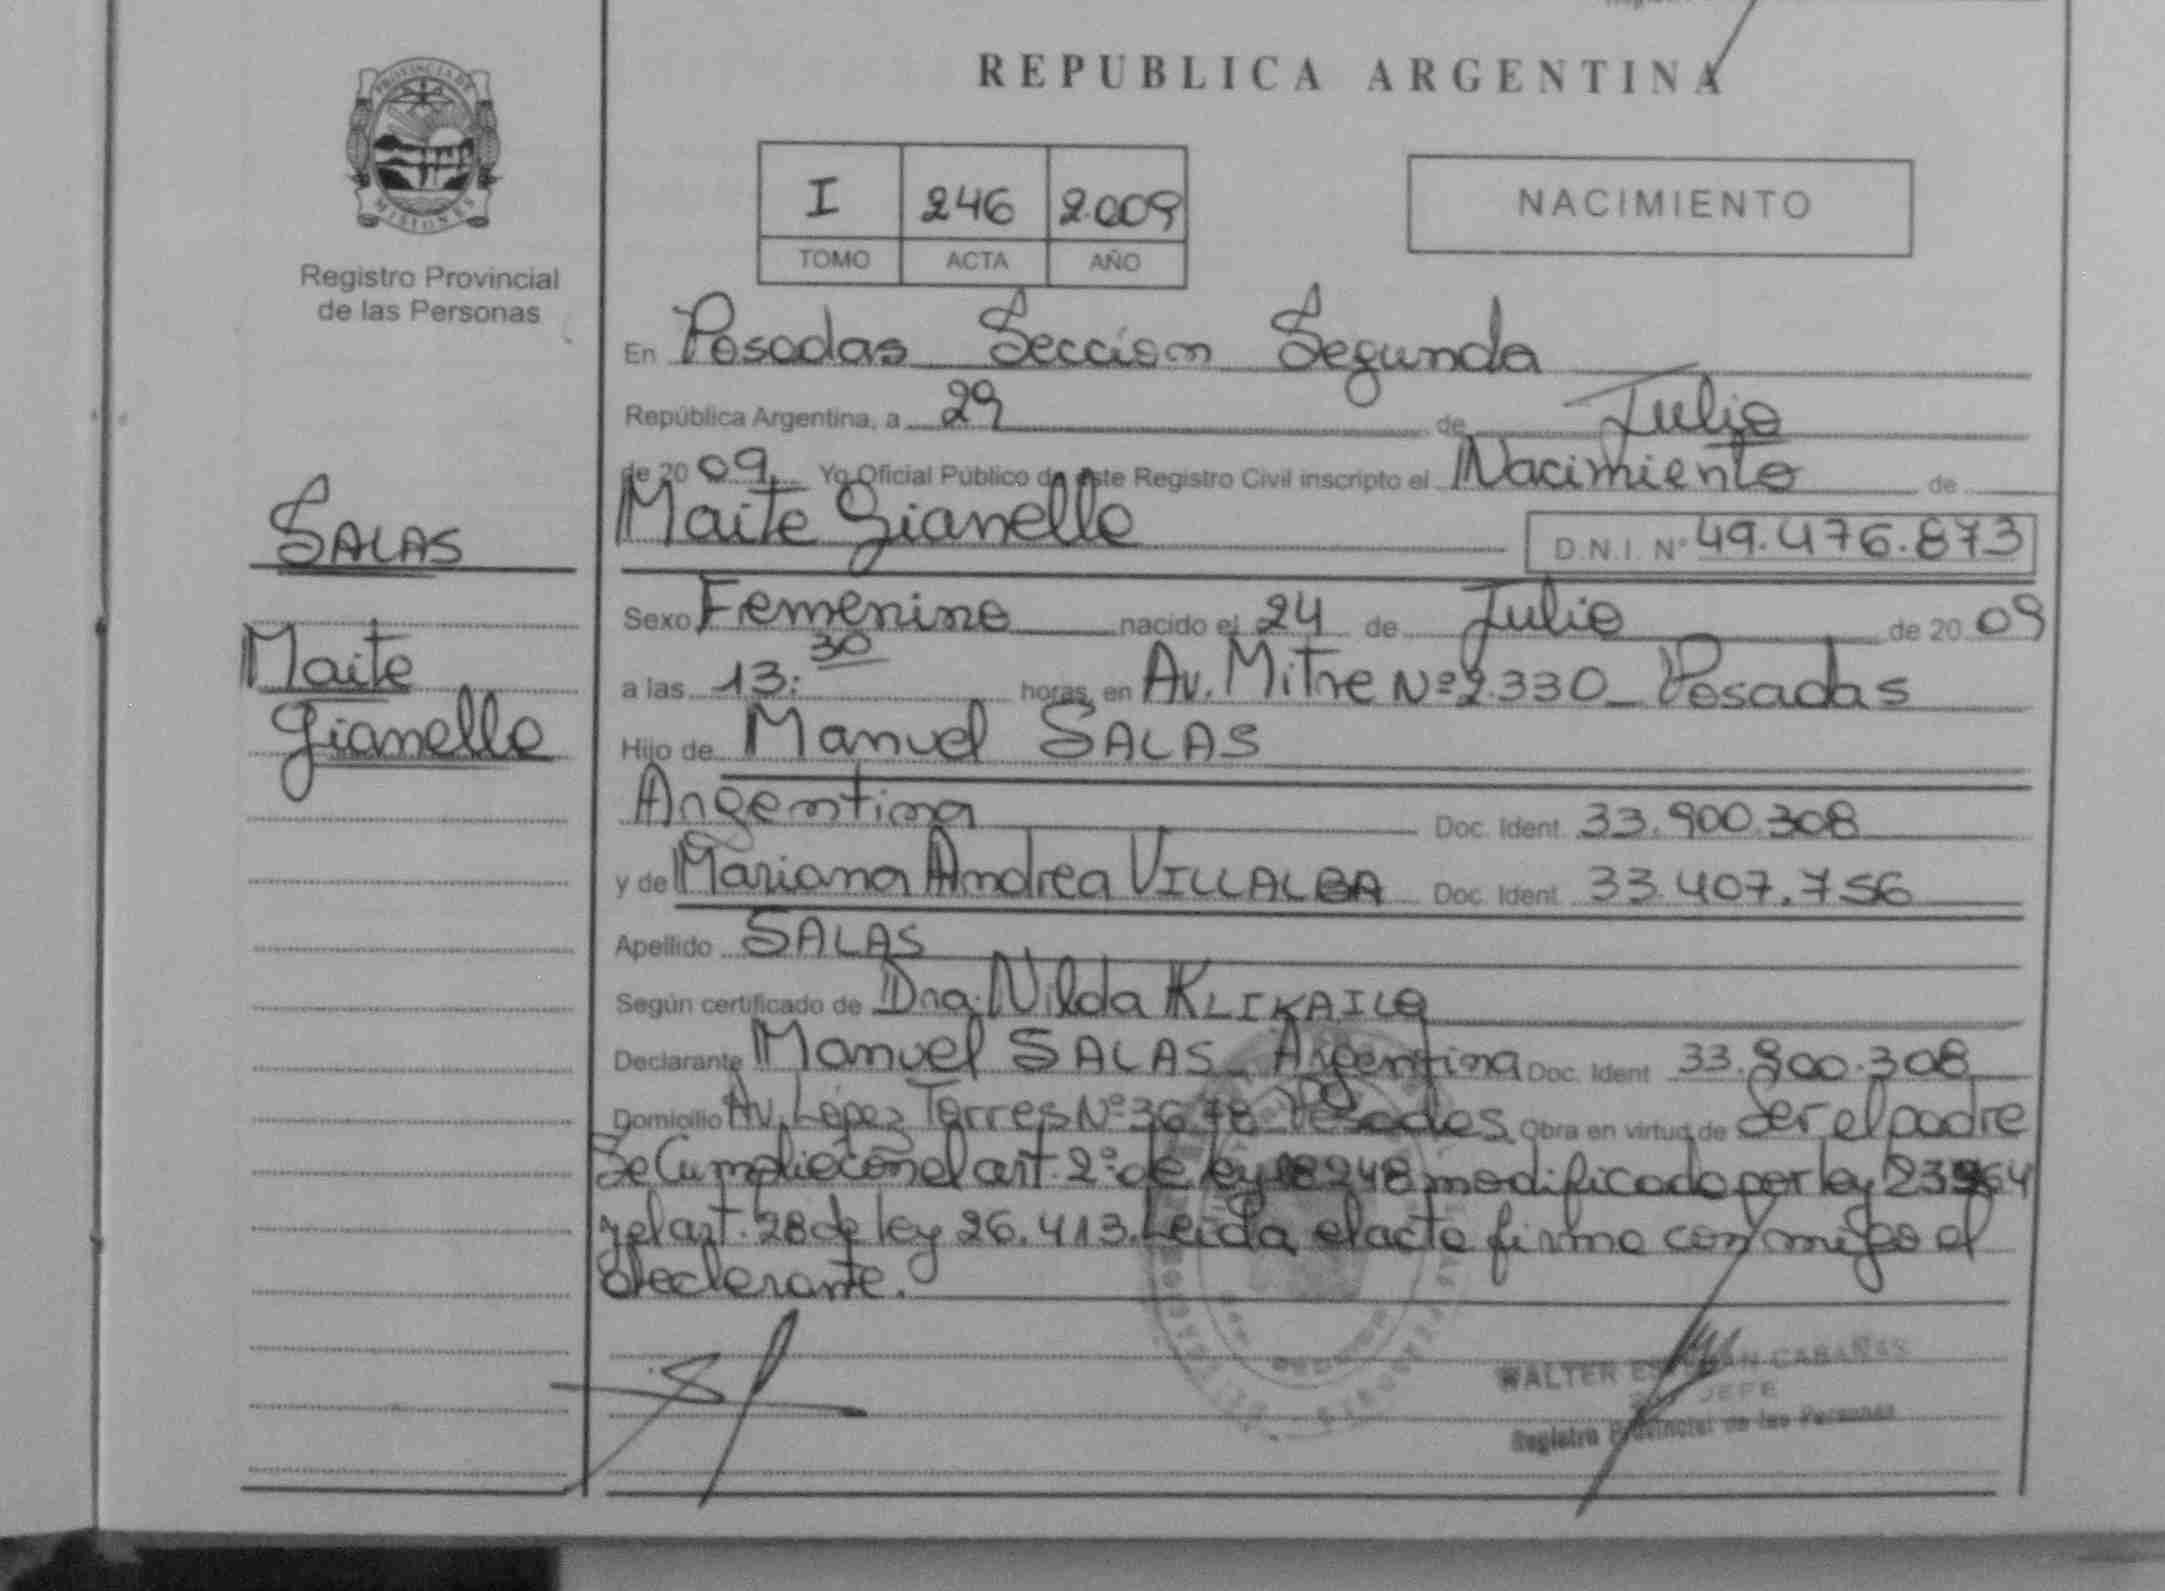 PROVINCIA DE
MISIONES
Registro Provincial
de las Personas
SALAS
Maite
Gianella
REPUBLICA ARGENTINA
I 246 2.009
TOMO ACTA AÑO
NACIMIENTO
En Posadas Seccion Segunda
República Argentina, a 29 de Julio
de 20 09 Yo Oficial Público de este Registro Civil inscripto el Nacimiento de
Maite Gianella D.N.I. Nº 49.476.873
Sexo Femenino nacido el 24 de Julio de 20 09
a las 13:30 horas, en Av. Mitre Nº 2.330_ Posadas
Hijo de Manuel SALAS
Argentina Doc. Ident. 33.900.308
y de Mariana Andrea VILLALBA Doc. Ident. 33.407.756
Apellido SALAS
Según certificado de Dra. Nilda
Declarante Manuel SALAS_ Argentina Doc. Ident 33.900.308
Domicilio Av. López Torres Nº 3678 Posadas Obra en virtud de Ser el padre
Se Cumplio con el art. 2º de ley 18248 modificado por ley
y el art. 28 de ley 26.413. Leida el acta firma conmigo el
declarante.
WALTER CABAÑAS
JEFE
Registro Provincial de las Personas